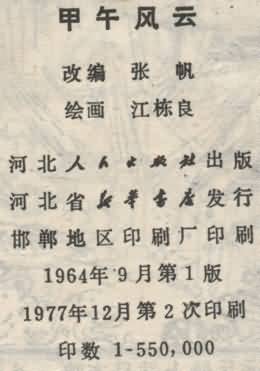 甲午风云
改编 张帆
绘画 江栋良
河北人民出版社出版
河北省新华书店发行
邯郸地区印刷厂印刷
1964年9月第1版
1977年12月第2次印刷
印数 1-550,000